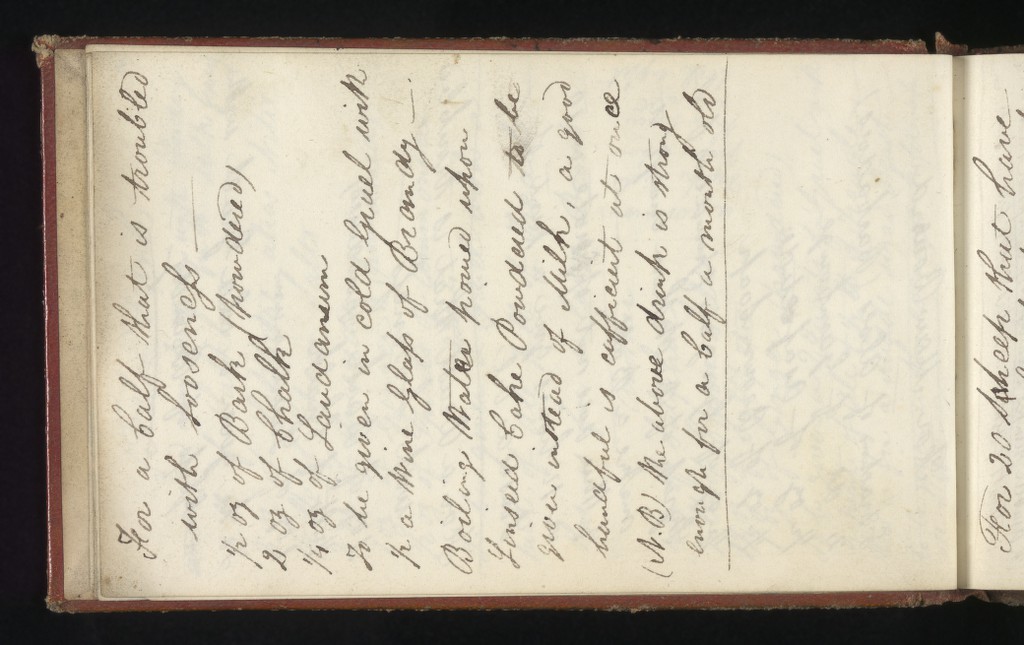 For a Calf that is troubled
with Looseness —
½ oz of Bark (powdered)
2 oz of Chalk
¼ oz of Laudanum
To be given in cold Gruel with
½ a Wine Glass of Brandy —
Boiling Water poured upon
Linseed Cake Powdered to be
given instead of Milk, a good
handful is sufficient at once
(N.B) the above drink is strong
enough for a Calf a month old
For 20 Sheep that have